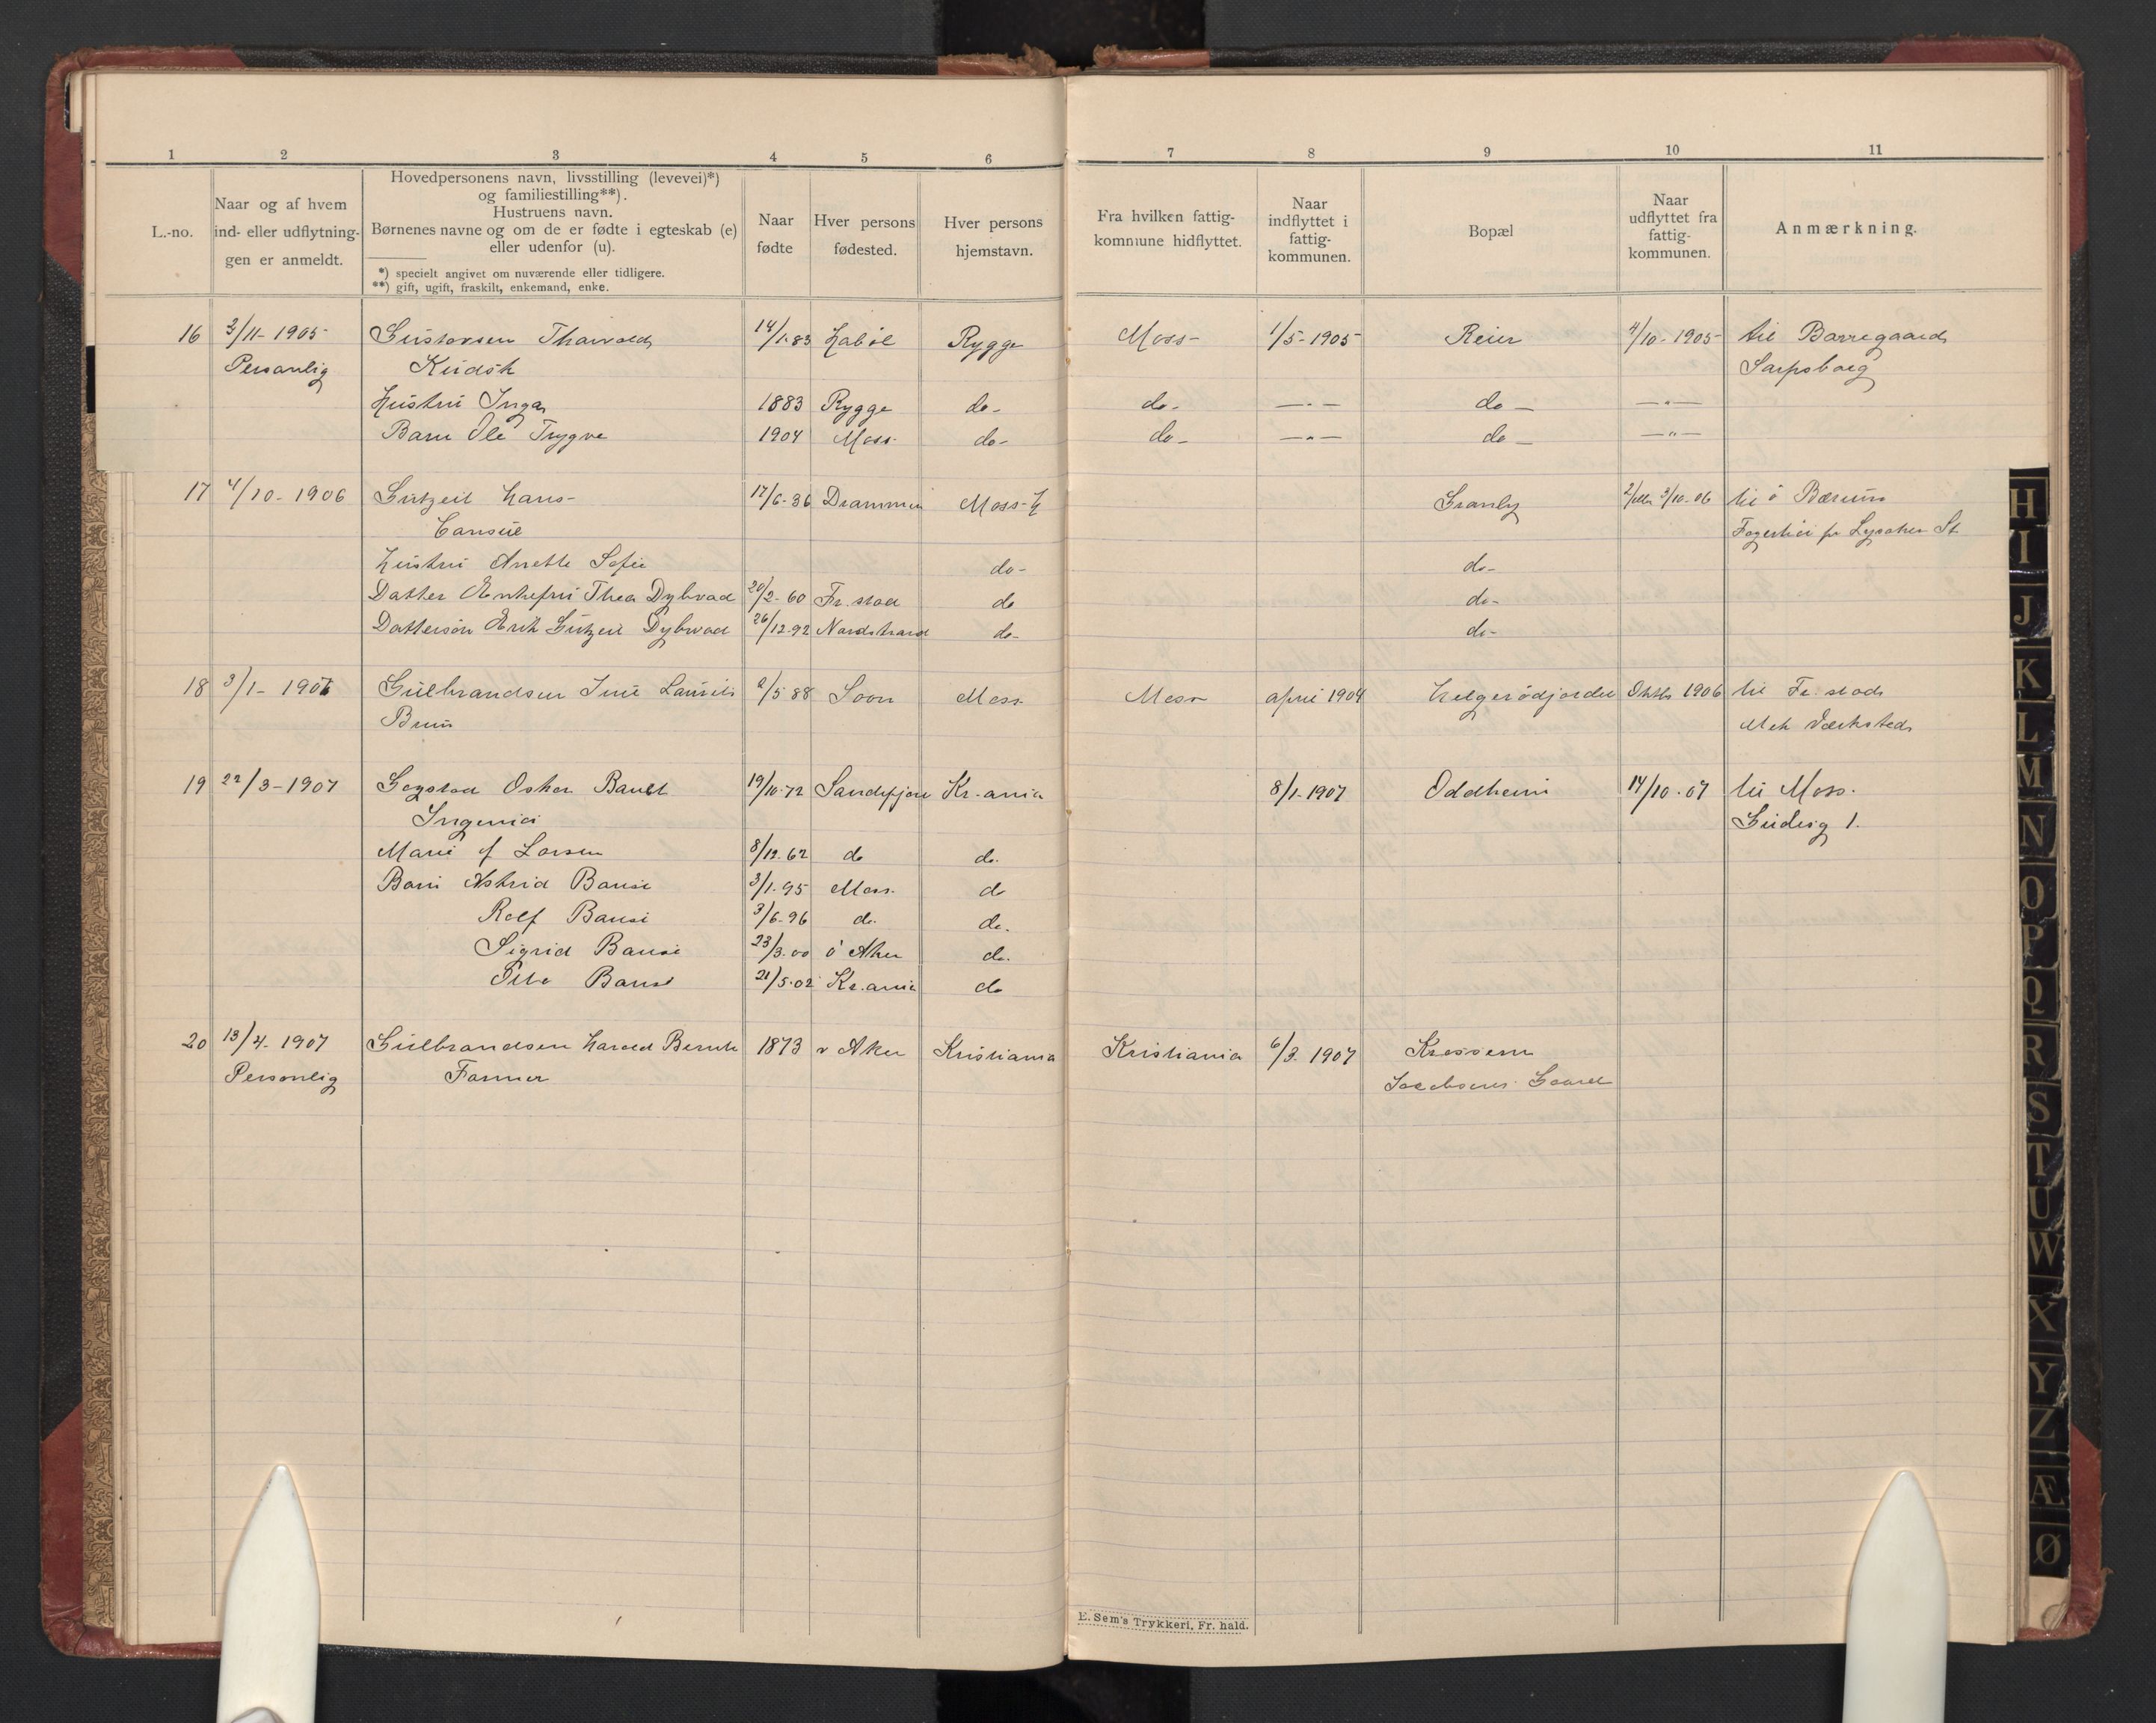 1 2 3 4 5 6 7 8 9 10 11
L.-no.
Naar og af hvem
ind- eller udflytnin-
gen er anmeldt.
Hovedpersonens navn, livsstilling (levevei)*)
og familiestilling**).
Hustruens navn.
Børnenes navne og om de er fødte i egteskab (e)
eller udenfor (u).
*) specielt angivet om nuværende eller tidligere.
**) gift, ugift, fraskilt, enkemand, enke.
Naar
fødte
Hver persons
fødested.
Hver persons
hjemstavn.
Fra hvilken fattig-
kommune hidflyttet.
Naar
indflyttet i
fattig-
kommunen.
Bopæl
Naar
udflyttet fra
fattig-
kommunen.
Anmærkning.
16 3/11-1905 Gustavsen Thorvald 14/1.83 Habøl Rygge Moss- 1/5-1905 Reier 4/10-1905 til Borregaard
Personlig Kudsk Sarpsborg
Hustru Inga 1883 Rygge do- do- —„— do — —„—
Barn Ole Trygve 1904 Moss do- do- —„— do — —„—
17 4/10-1906 Gutzeit Hans- 17/6-36 Drammen Moss- Granly 3/10-06 til Ø Bærum
Consul pr Lysaker St
Hustru Anette Sofie do- do-
Datter Enkefru Thea Dybwad 20/2-60 Fr.stad do do-
Dattersøn Erik Gutzeit Dybwad 26/12.92 Nordstrand do- do-
18 3/1-1907 Gulbrandsen Juul Laurits 2/5 88 Soon Moss Moss april 1904 Helgerødjordet Oktb 1906 til Fr.stad
Bruu Mek Værksted
19 22/3-1907 Gogstad Oskar Bauet 19/10-72 Sandefjord Kr-ania 8/1-1907 Oddheim 14/10-07 til Moss.
Ingeniør Gudesg 1.
Marie f Larsen 8/12.62 do do.
Barn Astrid 3/1-95 Moss. do
Rolf 3/6-96 do. do.
Sigrid 23/3.00 Ø Aker do.
21/5.02 Kr.ania do
20 13/4-1907 Gulbrandsen Harald Bernh 1873 v Aker Kristiania Kristiania 6/3-1907 Krossern
Personlig Former Jacobsens Gaard
E. Sem's Trykkeri, Fr. hald.
H
I
J
K
L
M
N
O
P
Q
R
S
T
U
W
X
Y
Z
Æ
Ø